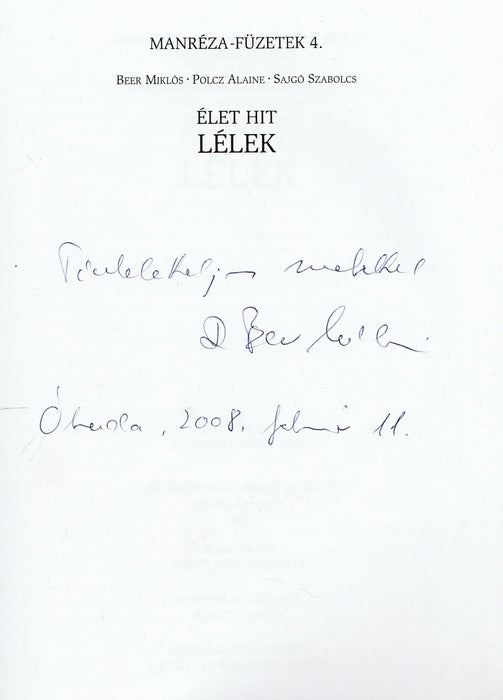 MANRÉZA-FÜZETEK 4.
BEER MIKLÓS · POLCZ ALAINE · SAJGÓ SZABOLCS
ÉLET HIT
LÉLEK
Tisztelettel,
Beer Miklós
Óbuda, 2008. február 11.